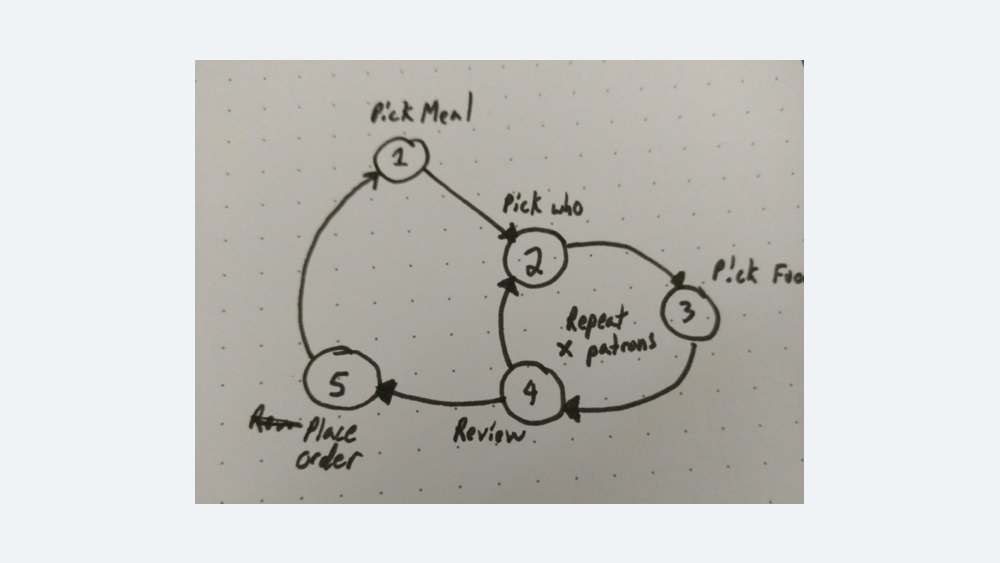 Pick Meal
1
Pick who
2
Pick
3
Repeat
x patrons
4
Review
5
Place
order